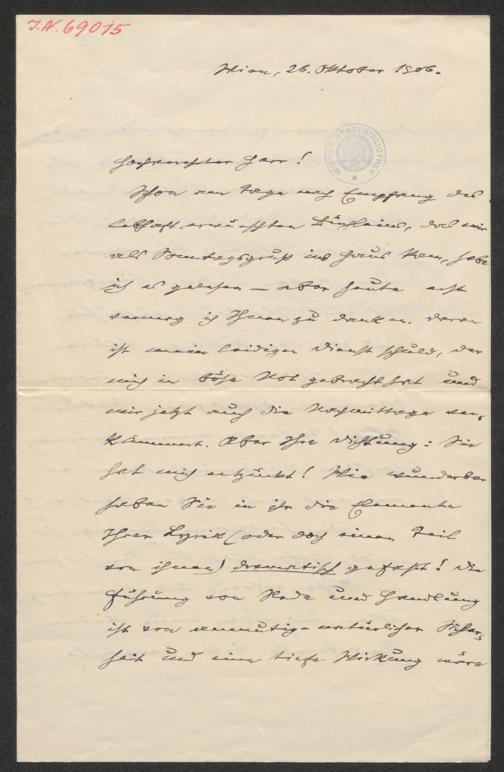 J.N. 69015
Wien, 26. Oktober 1906.
WIENER STADTBIBLIOTHEK
Hochverehrter Herr!
Schon am Tage nach Empfang des
lebhaft erwünschten Büchleins, das mir
als Sonntagsgruß ins Haus kam, habe
ich es gelesen – aber heute erst
vermag ich Ihnen zu danken. Daran
ist mein leidiger Dienst schuld, der
mich in böse Not gebracht hat und
mir jetzt auch die Nachmittage ver-
kümmert. Aber Ihre Dichtung: Sie
hat mich entzückt! Wie wunderbar
haben Sie in ihr die Elemente
Ihrer Lyrik (oder doch einen Teil
von ihnen) dramatisch gefaßt! Die
Führung von Rede und Handlung
ist von anmutig-natürlicher Sicher-
heit und eine tiefe Wirkung wäre